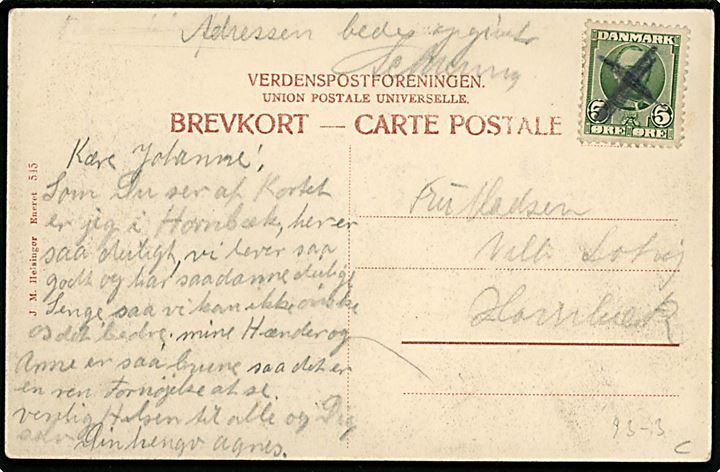 Adressen bedes opgivet
DANMARK
5 5
ØRE ØRE
VERDENSPOSTFORENINGEN.
UNION POSTALE UNIVERSELLE.
BREVKORT — CARTE POSTALE
J. M. Helsingør Eneret 545
Kære Johanne!
Som Du ser af Kortet
er jeg i Hornbæk, her er
saa dejligt, vi lever saa
godt og har saadanne dejlige
Senge saa vi kan ikke ønske
os det bedre. mine Hænder og
Arme er saa brune saa det er
en ren Fornøjelse at se.
venlig Hilsen til alle og Dig
selv Din hengv Agnes.
Fru Madsen
Villa
Hornbæk
93-13
C